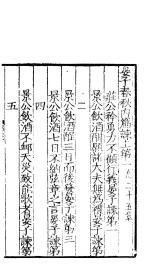 晏子春秋內篇諫上第一 凡二十五章
莊公矜勇力不顧行義晏子諫第一
景公飲酒酣願諸大夫無為禮晏子諫第二
景公飲酒酲三日而後發晏子諫第三
景公飲酒七日不納弦章之言晏子諫第四
景公飲酒不卹天災致能歌者晏子諫第五